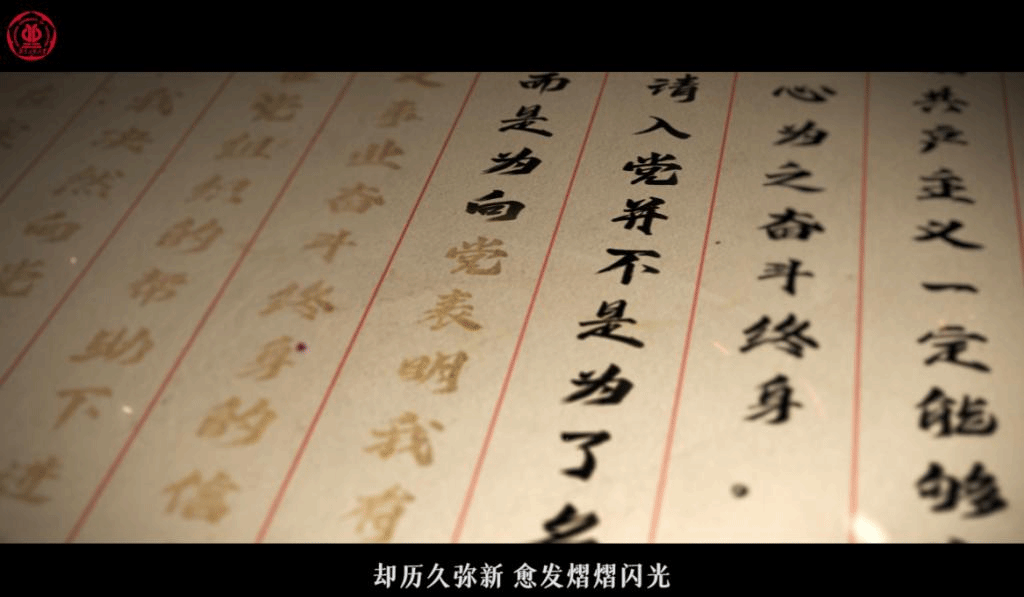 共产主义一定能够
心为之奋斗终身。
请入党并不是为了名
而是为向党表明我有
事业奋斗终身的信
党组织的帮助下进
我决然向党
却历久弥新 愈发熠熠闪光